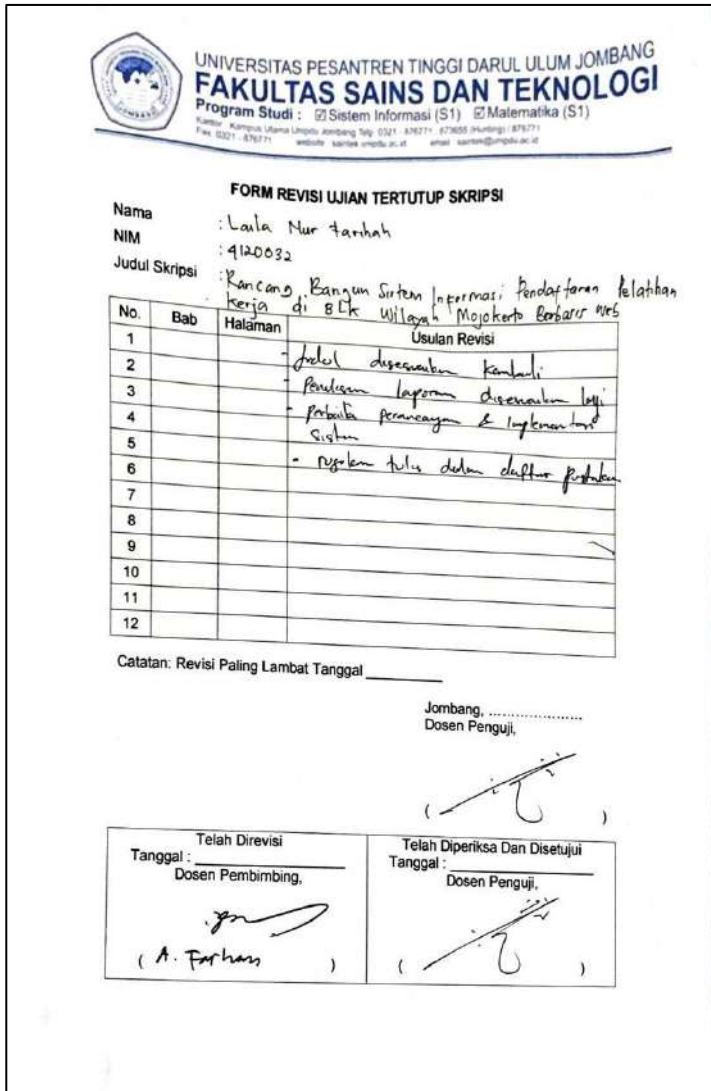 UNIVERSITAS PESANTREN TINGGI DARUL ULUM JOMBANG
FAKULTAS SAINS DAN TEKNOLOGI
Program Studi : ☑ Sistem Informasi (S1) ☑ Matematika (S1)
Kantor : Kampus Utama Unipdu Jombang Telp. 0321 - 876771 , 873655 (Hunting) : 876771
Fax. 0321 - 876771 website : saintek.unipdu.ac.id email : saintek@unipdu.ac.id
FORM REVISI UJIAN TERTUTUP SKRIPSI
Nama : Laila Nur
NIM : 4120032
Judul Skripsi : Rancang Bangun Sistem Informasi Pendaftaran Pelatihan
Kerja di BLK Wilayah Mojokerto Berbasis Web
No. Bab Halaman Usulan Revisi
1
2 - Judul disesuaikan kembali
3 - Penulisan laporan disesuaikan lagi
4 - perbaiki perancangan & Implementasi
5 sistem
6 - tulis dalam daftar pustaka
7
8
9
10
11
12
Catatan: Revisi Paling Lambat Tanggal
Jombang, .....................
Dosen Penguji,
( )
Telah Direvisi
Tanggal :
Dosen Pembimbing,
( A. Farhan )
Telah Diperiksa Dan Disetujui
Tanggal :
Dosen Penguji,
( )